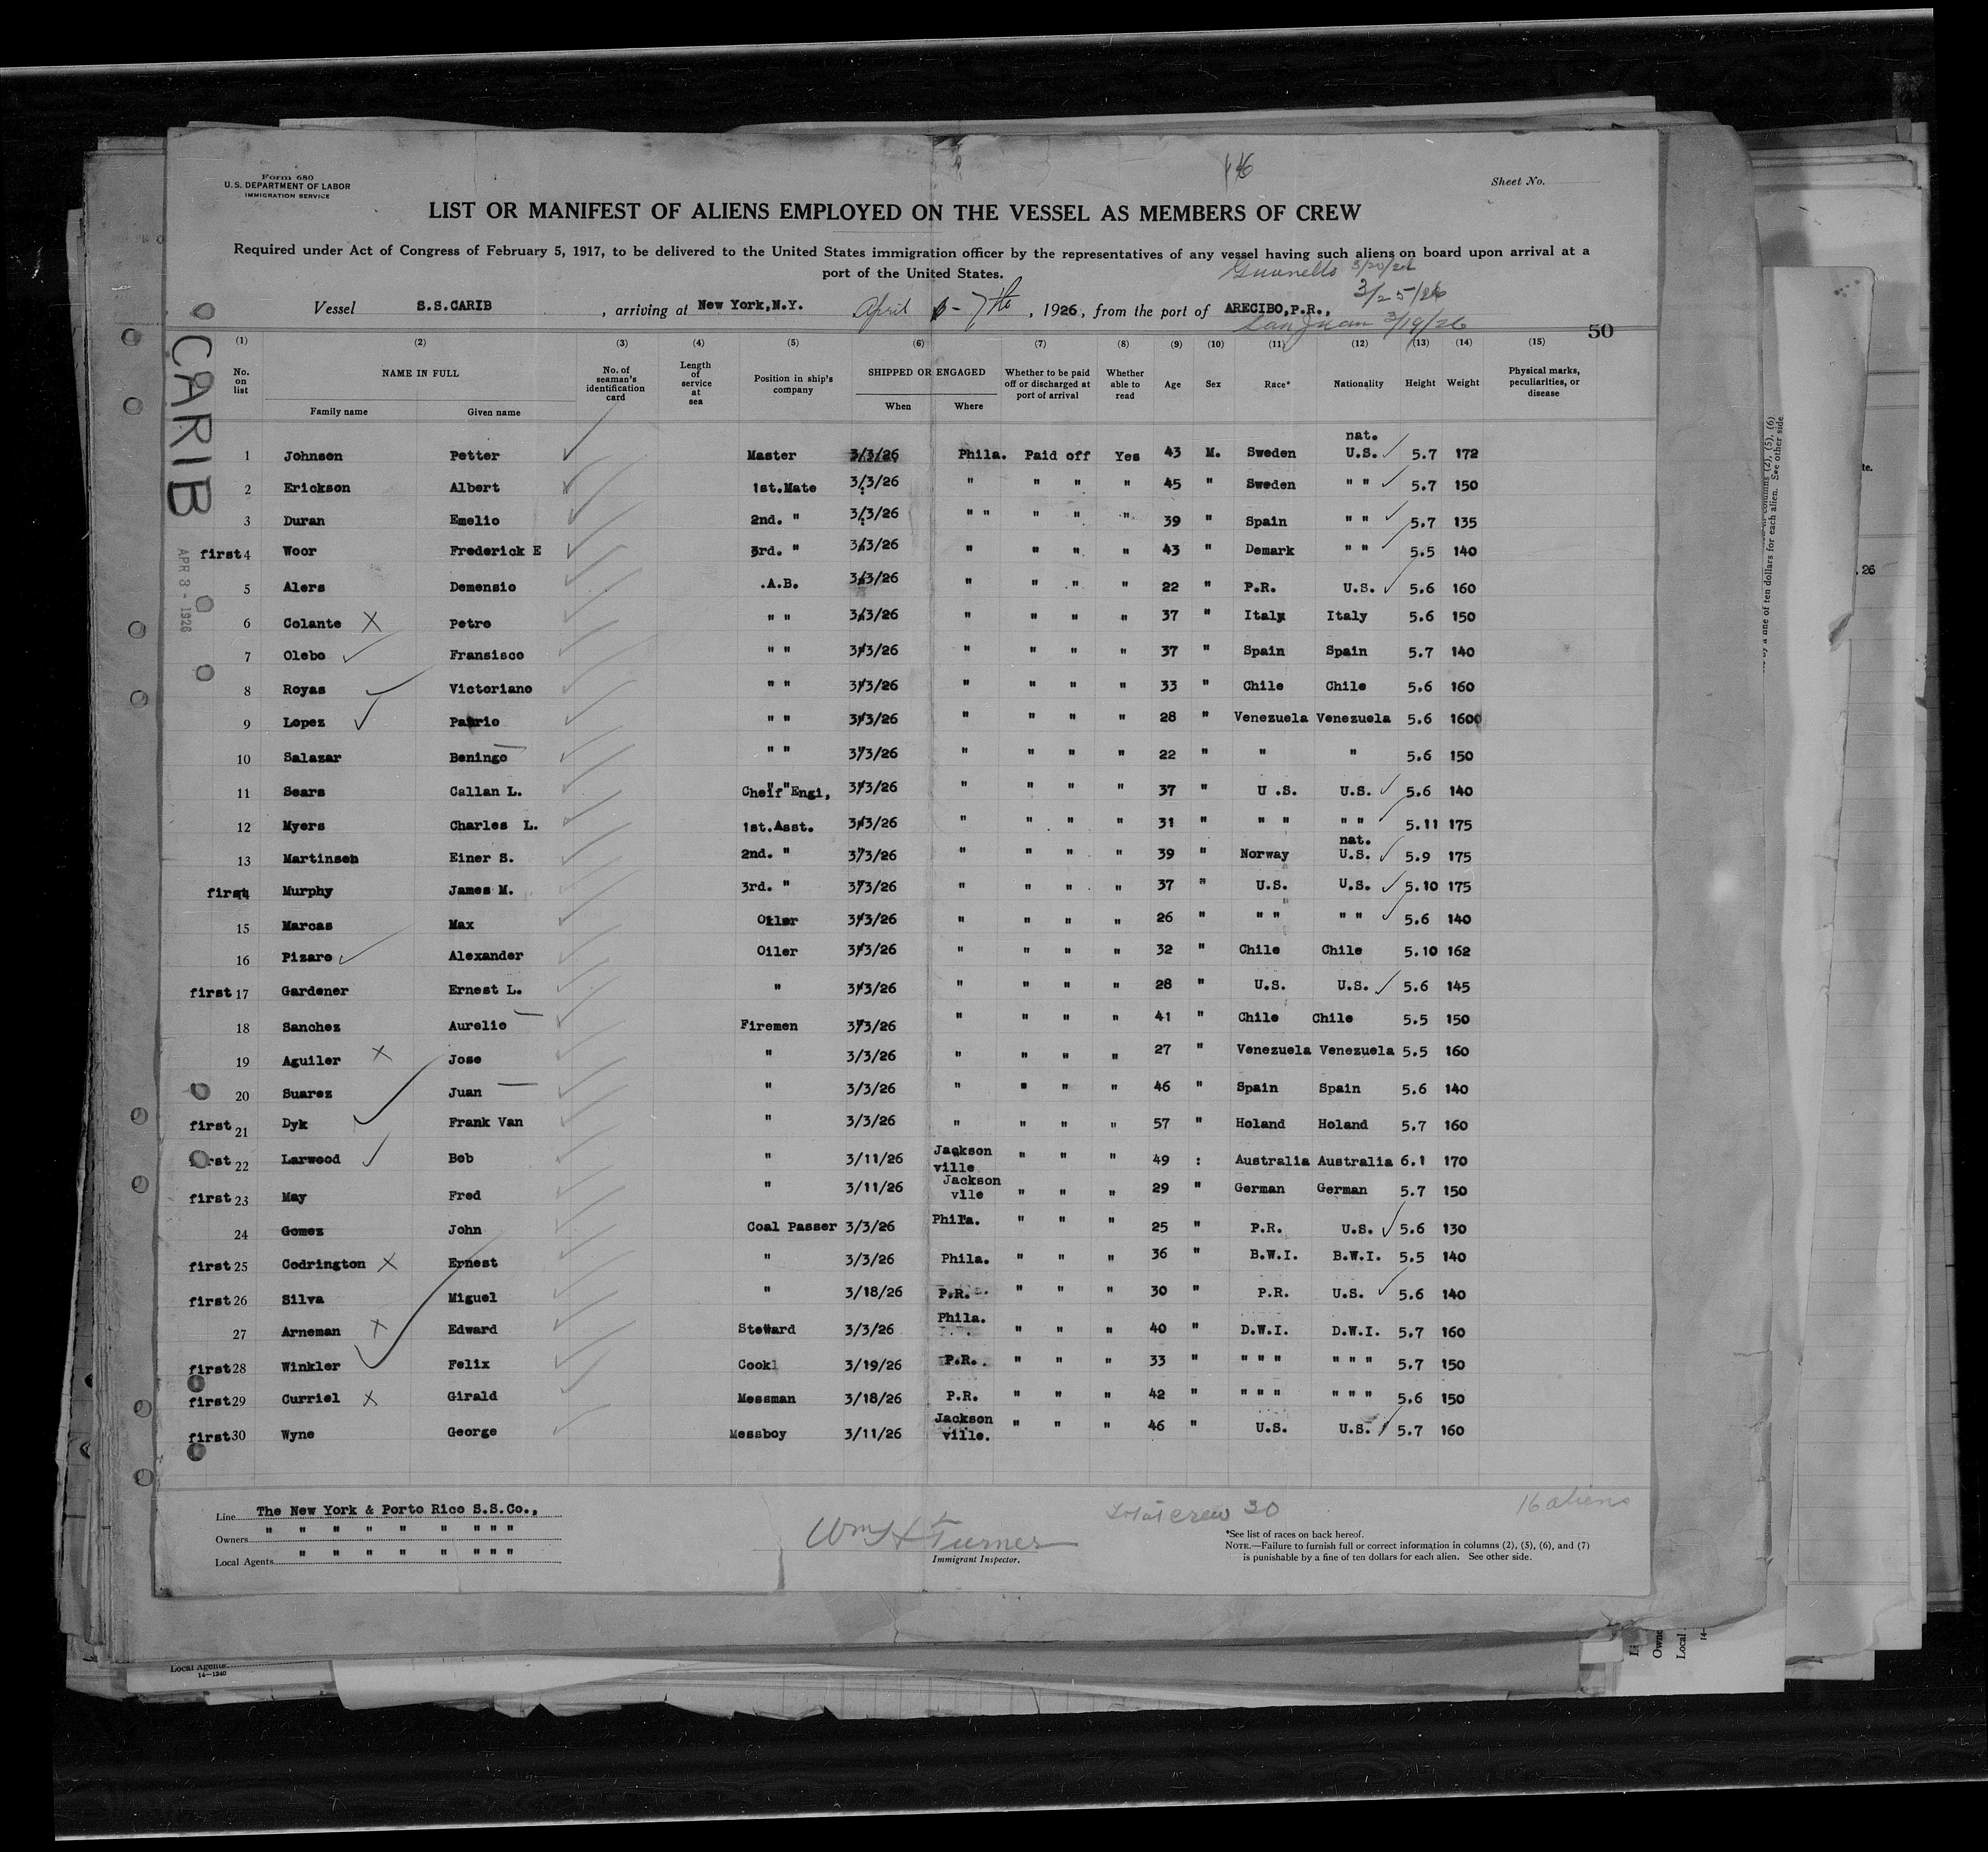 Form 680
U.S. DEPARTMENT OF LABOR
IMMIGRATION SERVICE
Sheet No.
LIST OR MANIFEST OF ALIENS EMPLOYED ON THE VESSEL AS MEMBERS OF CREW
Required under Act of Congress of February 5, 1917, to be delivered to the United States immigration officer by the representatives of any vessel having such aliens on board upon arrival at a
port of the United States.
3/20/26
3/25/26
Vessel S.S.CARIB , arriving at New York,N.Y. April 7th , 1926, from the port of ARECIBO,P.R.,
San Juan 3/19/26
50
CARIB
APR 8 - 1926
(1) (2) (3) (4) (5) (6) (7) (8) (9) (10) (11) (12) (13) (14) (15)
No. on list NAME IN FULL Family name Given name No. of seaman's identification card Length of service at sea Position in ship's company SHIPPED OR ENGAGED When Where Whether to be paid off or discharged at port of arrival Whether able to read Age Sex Race* Nationality Height Weight Physical marks, peculiarities, or disease
nat.
1 Johnson Petter Master 3/3/26 Phila. Paid off Yes 43 M. Sweden U.S. 5.7 172
2 Erickson Albert 1st.Mate 3/3/26 " " " " 45 " Sweden " " 5.7 150
3 Duran Emelio 2nd. " 3/3/26 " " " " " 39 " Spain " " 5.7 135
first 4 Woor Frederick E 3rd. " 3/3/26 " " " " 43 " Demark " " 5.5 140
5 Alers Demensio .A.B. 3/3/26 " " " " 22 " P.R. U.S. 5.6 160
6 Colante X Petro " " 3/3/26 " " " " 37 " Italy Italy 5.6 150
7 Olebo Fransisco " " 3/3/26 " " " " 37 " Spain Spain 5.7 140
8 Royas Victoriano " " 3/3/26 " " " " 33 " Chile Chile 5.6 160
9 Lopez " " 3/3/26 " " " " 28 " Venezuela Venezuela 5.6 1600
10 Salazar Beningo " " 3/3/26 " " " " 22 " " " 5.6 150
11 Sears Callan L. Cheif Engi, 3/3/26 " " " " 37 " U .S. U.S. 5.6 140
12 Myers Charles L. 1st.Asst. 3/3/26 " " " " 31 " " " " " 5.11 175
nat.
13 Martinsen Einer S. 2nd. " 3/3/26 " " " " 39 " Norway U.S. 5.9 175
first 14 Murphy James M. 3rd. " 3/3/26 " " " " 37 " U.S. U.S. 5.10 175
15 Marcas Max Oiler 3/3/26 " " " " 26 " " " " " 5.6 140
16 Pizaro Alexander Oiler 3/3/26 " " " " 32 " Chile Chile 5.10 162
first 17 Gardener Ernest L. " 3/3/26 " " " " 28 " U.S. U.S. 5.6 145
18 Sanchez Aurelio Firemen 3/3/26 " " " " 41 " Chile Chile 5.5 150
19 Aguiler X Jose " 3/3/26 " " " " 27 " Venezuela Venezuela 5.5 160
20 Suarez Juan " 3/3/26 " " " " 46 " Spain Spain 5.6 140
first 21 Dyk Frank Van " 3/3/26 " " " " 57 " Holand Holand 5.7 160
first 22 Larwood Bob " 3/11/26 Jackson ville " " " 49 : Australia Australia 6.1 170
first 23 May Fred " 3/11/26 Jackson vlle " " " 29 " German German 5.7 150
24 Gomez John Coal Passer 3/3/26 Phila. " " " 25 " P.R. U.S. 5.6 130
first 25 Codrington X Ernest " 3/3/26 Phila. " " " 36 " B.W.I. B.W.I. 5.5 140
first 26 Silva Miguel " 3/18/26 P.R. " " " 30 " P.R. U.S. 5.6 140
27 Arneman X Edward Steward 3/3/26 Phila. " " " 40 " D.W.I. D.W.I. 5.7 160
first 28 Winkler Felix Cook 3/19/26 P.R. " " " 33 " " " " " " " 5.7 150
first 29 Curriel X Girald Messman 3/18/26 P.R. " " " 42 " " " " " " " 5.6 150
first 30 Wyne George Messboy 3/11/26 Jackson ville. " " " 46 " U.S. U.S. 5.7 160
Line The New York & Porto Rico S.S.Co.,
Owners " " " " " " " " "
Local Agents " " " " " " " "
Wm H Turner
Immigrant Inspector.
Total crew 30
16 aliens
*See list of races on back hereof.
NOTE.—Failure to furnish full or correct information in columns (2), (5), (6), and (7)
is punishable by a fine of ten dollars for each alien. See other side.
Local Agents
14—1240